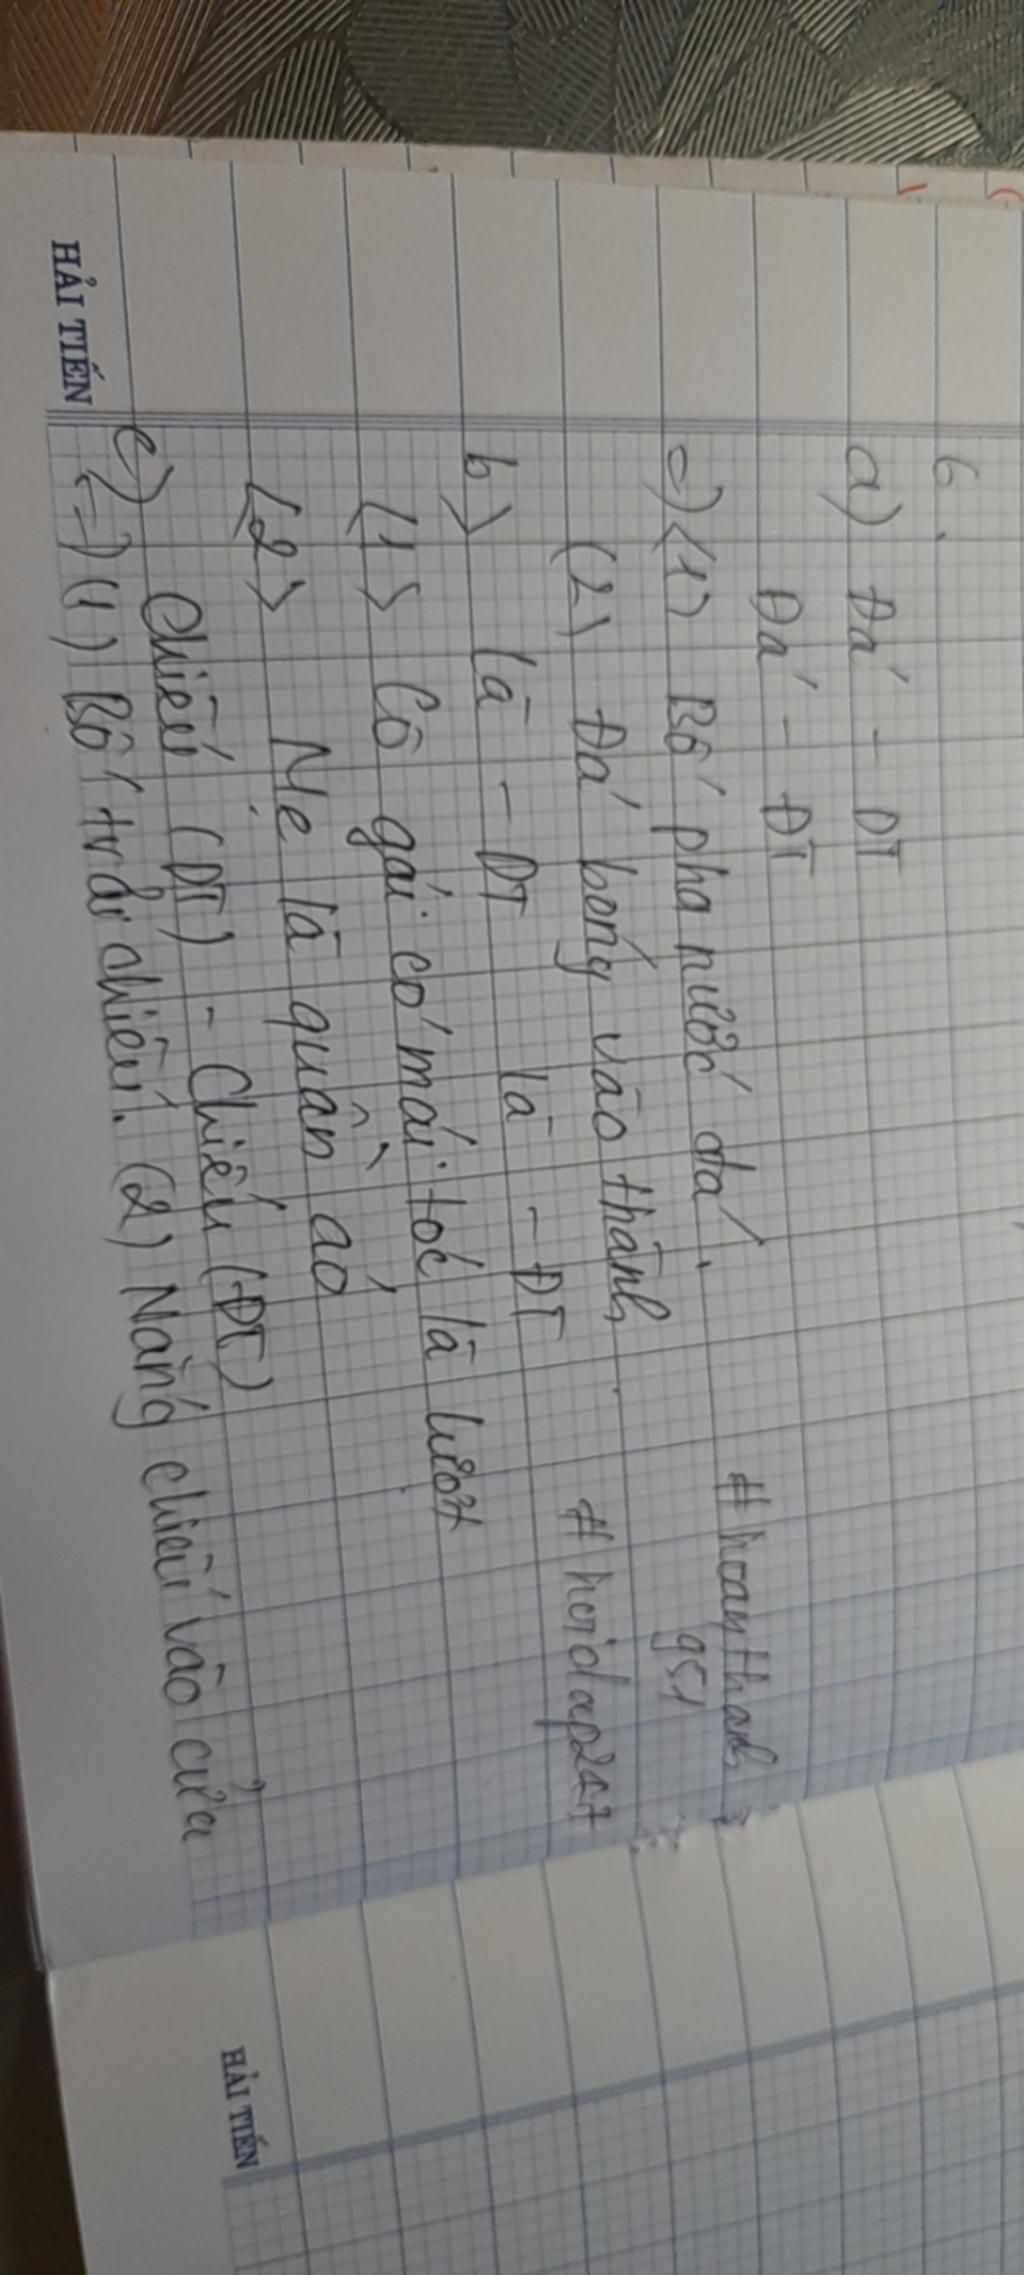 6.
a) Đá - DT
Đá - ĐT
=) (1) Bố pha nước đá.
(2) Đá bóng vào thành
b) là - DT là - ĐT
(1) Cô gái có mái tóc là lướt
(2) Mẹ là quần áo
c) Chiếu (DT) - Chiếu (ĐT)
=) (1) Bố trải chiếu. (2) Nắng chiếu vào cửa
# hoanthanh
951
# hoidap247
HẢI TIẾN
HẢI TIẾN